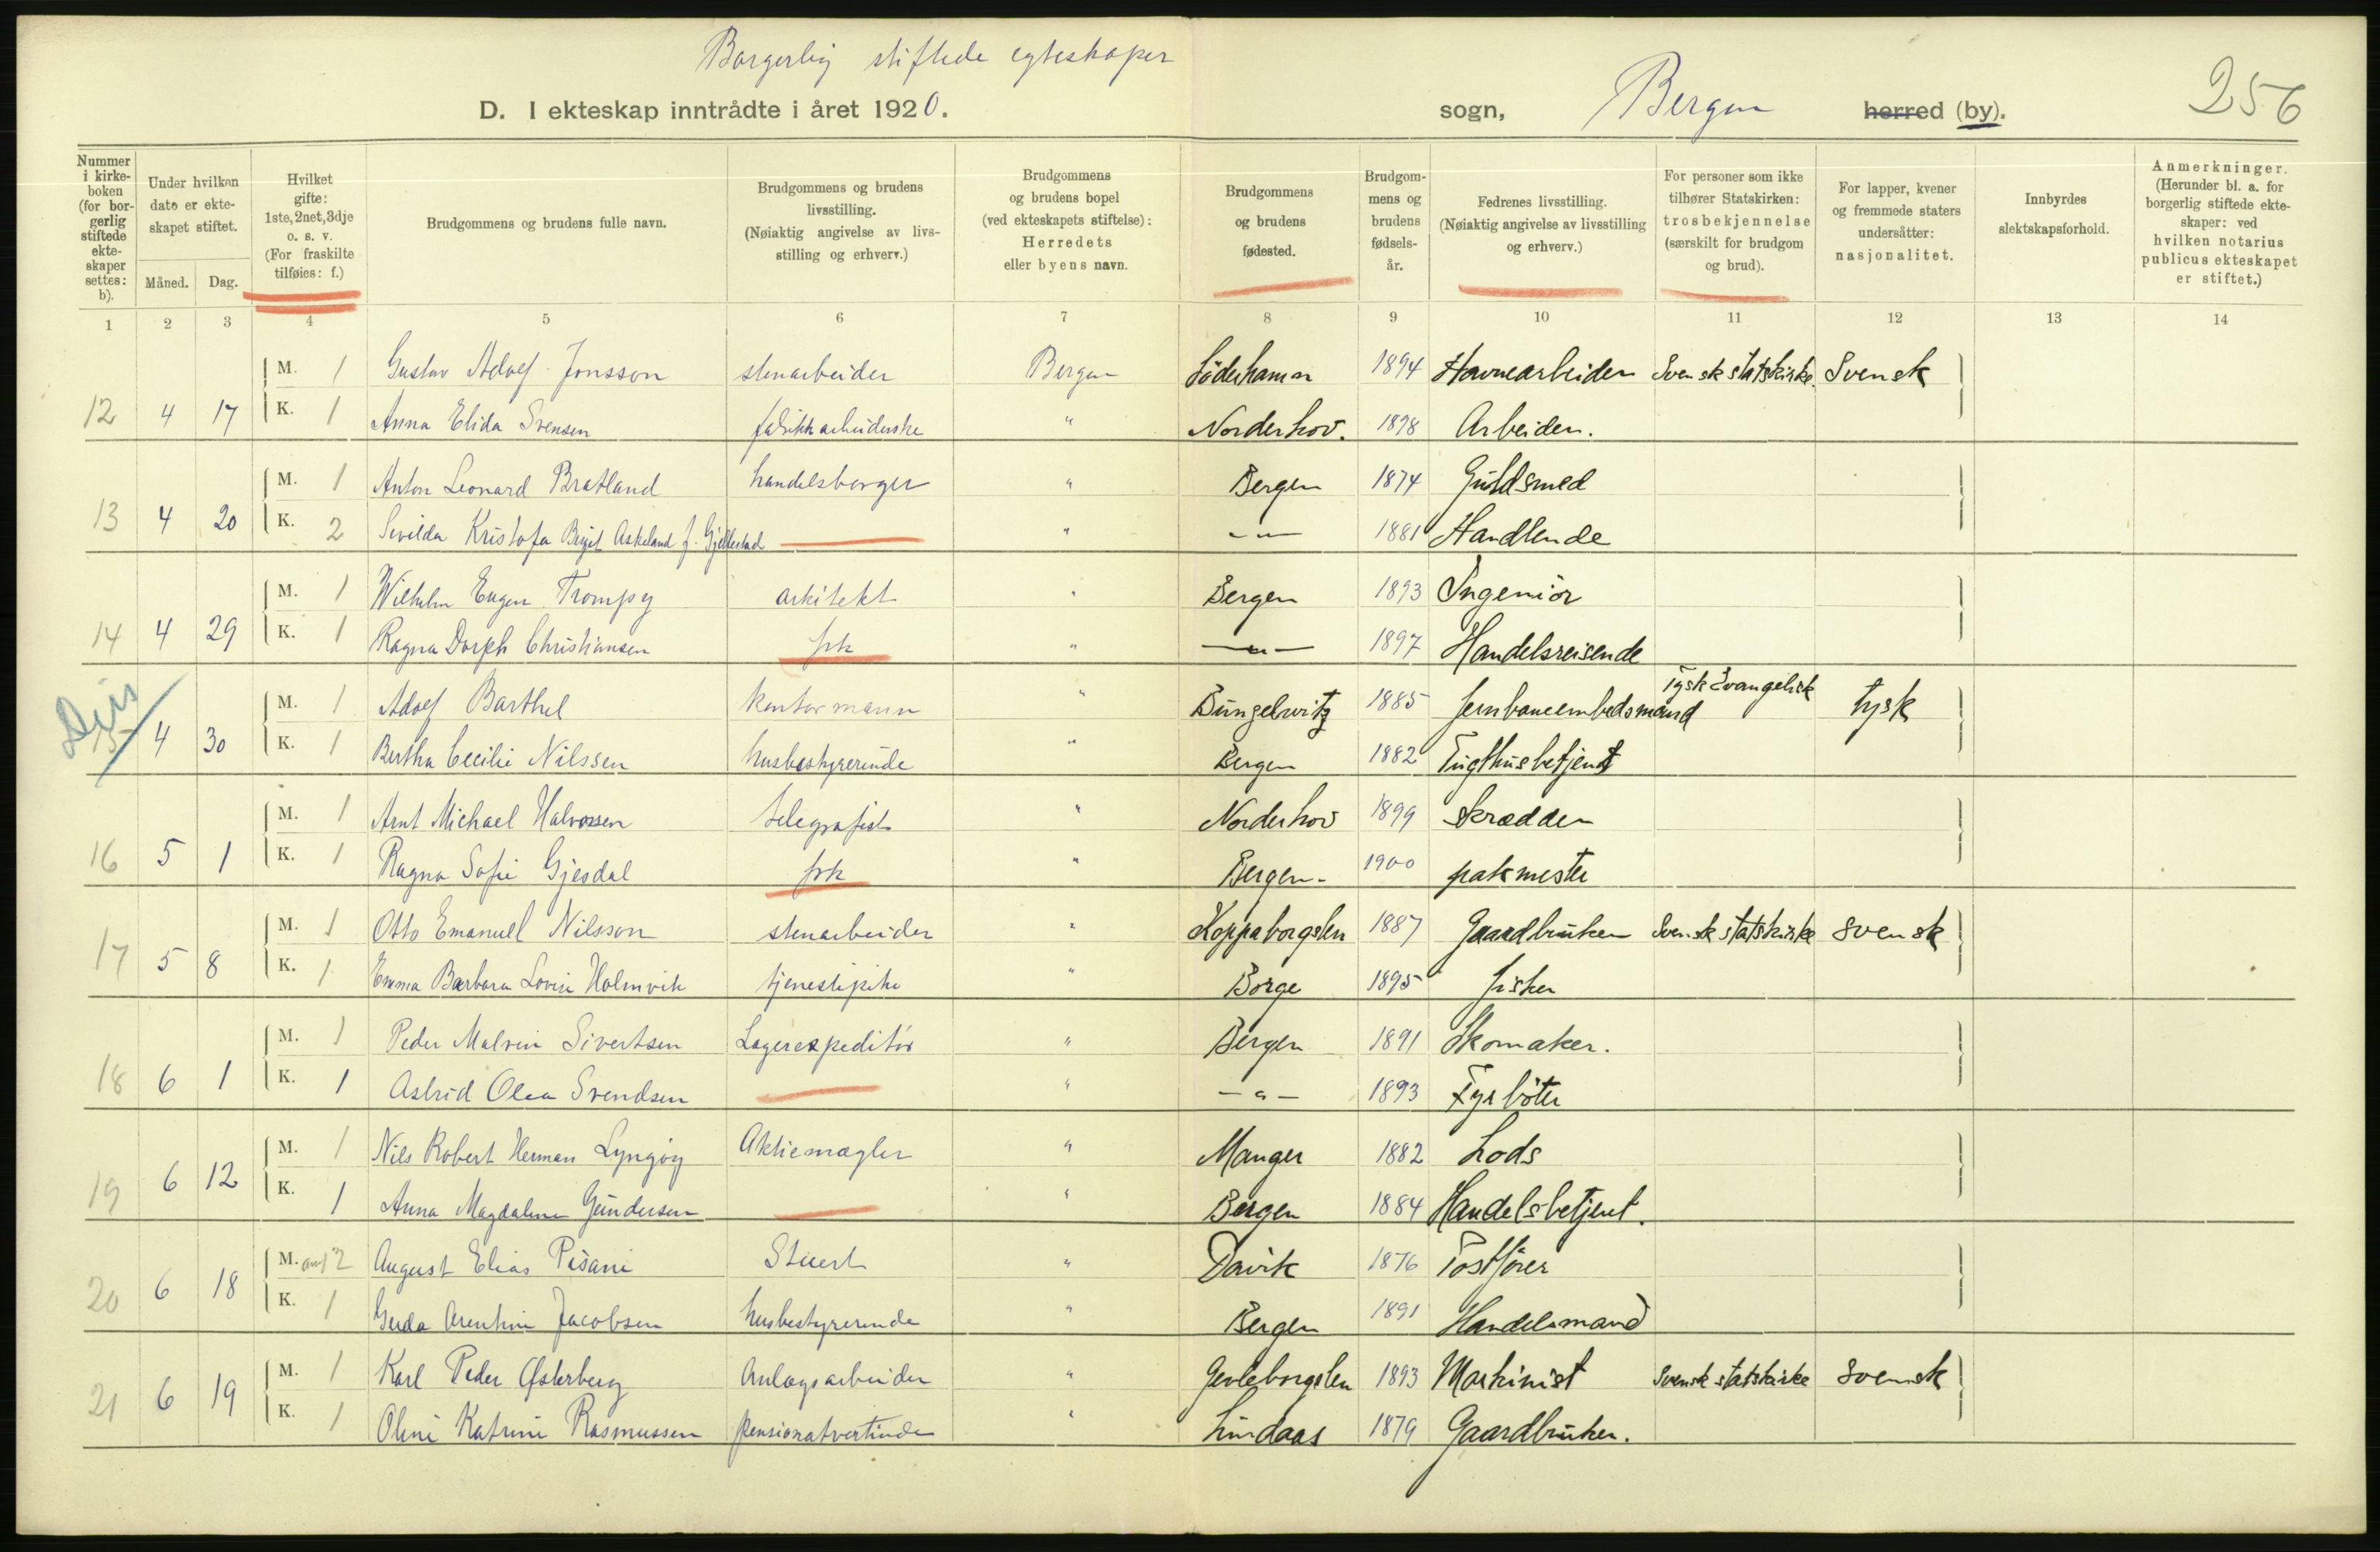 Borgerlig stiftede egteskaper
D. I ekteskap inntrådte i året 1920. sogn, Bergen herred (by). 256
Nummer i kirkeboken (for borgerlig stiftede ekteskaper settes: b).
Under hvilken dato er ekteskapet stiftet.
Måned. Dag.
Hvilket gifte: 1ste, 2net, 3dje o. s. v. (For fraskilte tilføies: f.)
Brudgommens og brudens fulle navn.
Brudgommens og brudens livsstilling. (Nøiaktig angivelse av livsstilling og erhverv.)
Brudgommens og brudens bopel (ved ekteskapets stiftelse): Herredets eller byens navn.
Brudgommens og brudens fødested.
Brudgommens og brudens fødselsår.
Fedrenes livsstilling. (Nøiaktig angivelse av livsstilling og erhverv.)
For personer som ikke tilhører Statskirken: trosbekjennelse (særskilt for brudgom og brud).
For lapper, kvener og fremmede staters undersåtter: nasjonalitet.
Innbyrdes slektskapsforhold.
Anmerkninger. (Herunder bl. a. for borgerlig stiftede ekteskaper: ved hvilken notarius publicus ekteskapet er stiftet.)
1 2 3 4 5 6 7 8 9 10 11 12 13 14
M. 1 Gustav Adolf Jonsson stenarbeider Bergen Söderhamn 1894 Havnearbeider Svensk statskirke Svensk
12 4 17 K. 1 Anna Elida Svensen fabrikkarbeiderske " Norderhov. 1898 Arbeider.
M. 1 Anton Leonard Bratland handelsborger " Bergen 1874 Guldsmed
13 4 20 K. 2 Sevilda Kristofa Birgit Askeland f. Gjellestad — " — " — 1881 Handlende
M. 1 Wilhelm Eugen Trompy arkitekt " Bergen 1893 Ingeniør
14 4 29 K. 1 Ragna Dorph Christiansen frk " — " — 1897 Handelsreisende
M. 1 Adolf Barthel kontormann " Bungelwitz 1885 Jernbaneembedsmand Tysk Evangelisk tysk
15 4 30 K. 1 Bertha Cecilie Nilssen husbestyrerinde " Bergen 1882 Tugthusbetjent
M. 1 Arnt Michael Halvorsen telegrafist " Norderhov 1899 Skrædder
16 5 1 K. 1 Ragna Sofie Gjesdal frk " Bergen 1900 pakmester
M. 1 Otto Emanuel Nilsson stenarbeider " Koppaborgslen 1887 Gaardbruker Svensk statskirke svensk
17 5 8 K. 1 Emma Barbara Lovise Holmvik tjenestepike " Borge 1895 fisker
M. 1 Peder Malvin Sivertsen Lagerexpeditør " Bergen 1891 Skomaker.
18 6 1 K. 1 Astrid Olea Svendsen — " — " — 1893 Fyrböter
M. 1 Nils Robert Herman Lyngøy Aktiemægler " Manger 1882 Lods
19 6 12 K. 1 Anna Magdalene Gundersen — " Bergen 1884 Handelsbetjent.
M. 2 August Elias Pisani Stuert " Davik 1876 Postfører
20 6 18 K. 1 Gerda Arentine Jacobsen husbestyrerinde " Bergen 1891 Handelsmand
M. 1 Karl Peder Østerberg Anlægsarbeider " Gevleborgslen 1893 Maskinist Svensk statskirke svensk
21 6 19 K. 1 Oline Katrine Rasmussen pensionatvertinde " Lindaas 1879 Gaardbruker.